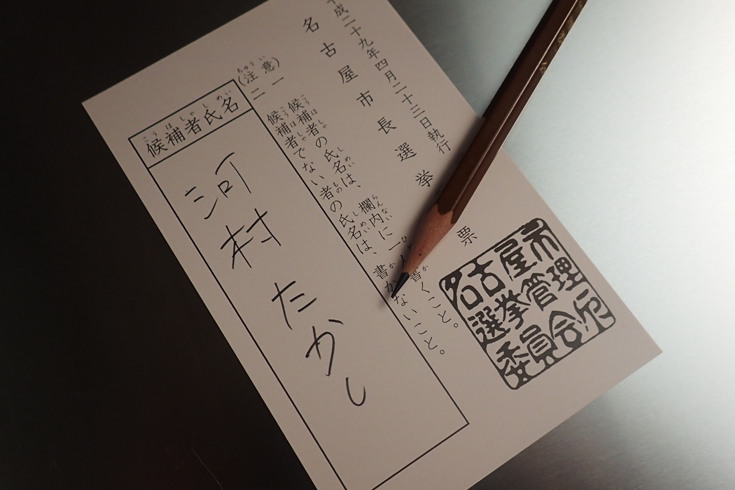 平成二十九年四月二十三日執行
名古屋市長選挙 票
名古屋市
選挙管理
委員会印
(注意)
一 候補者の氏名は、欄内に一人書くこと。
二 候補者でない者の氏名は、書かないこと。
候補者氏名
河村たかし